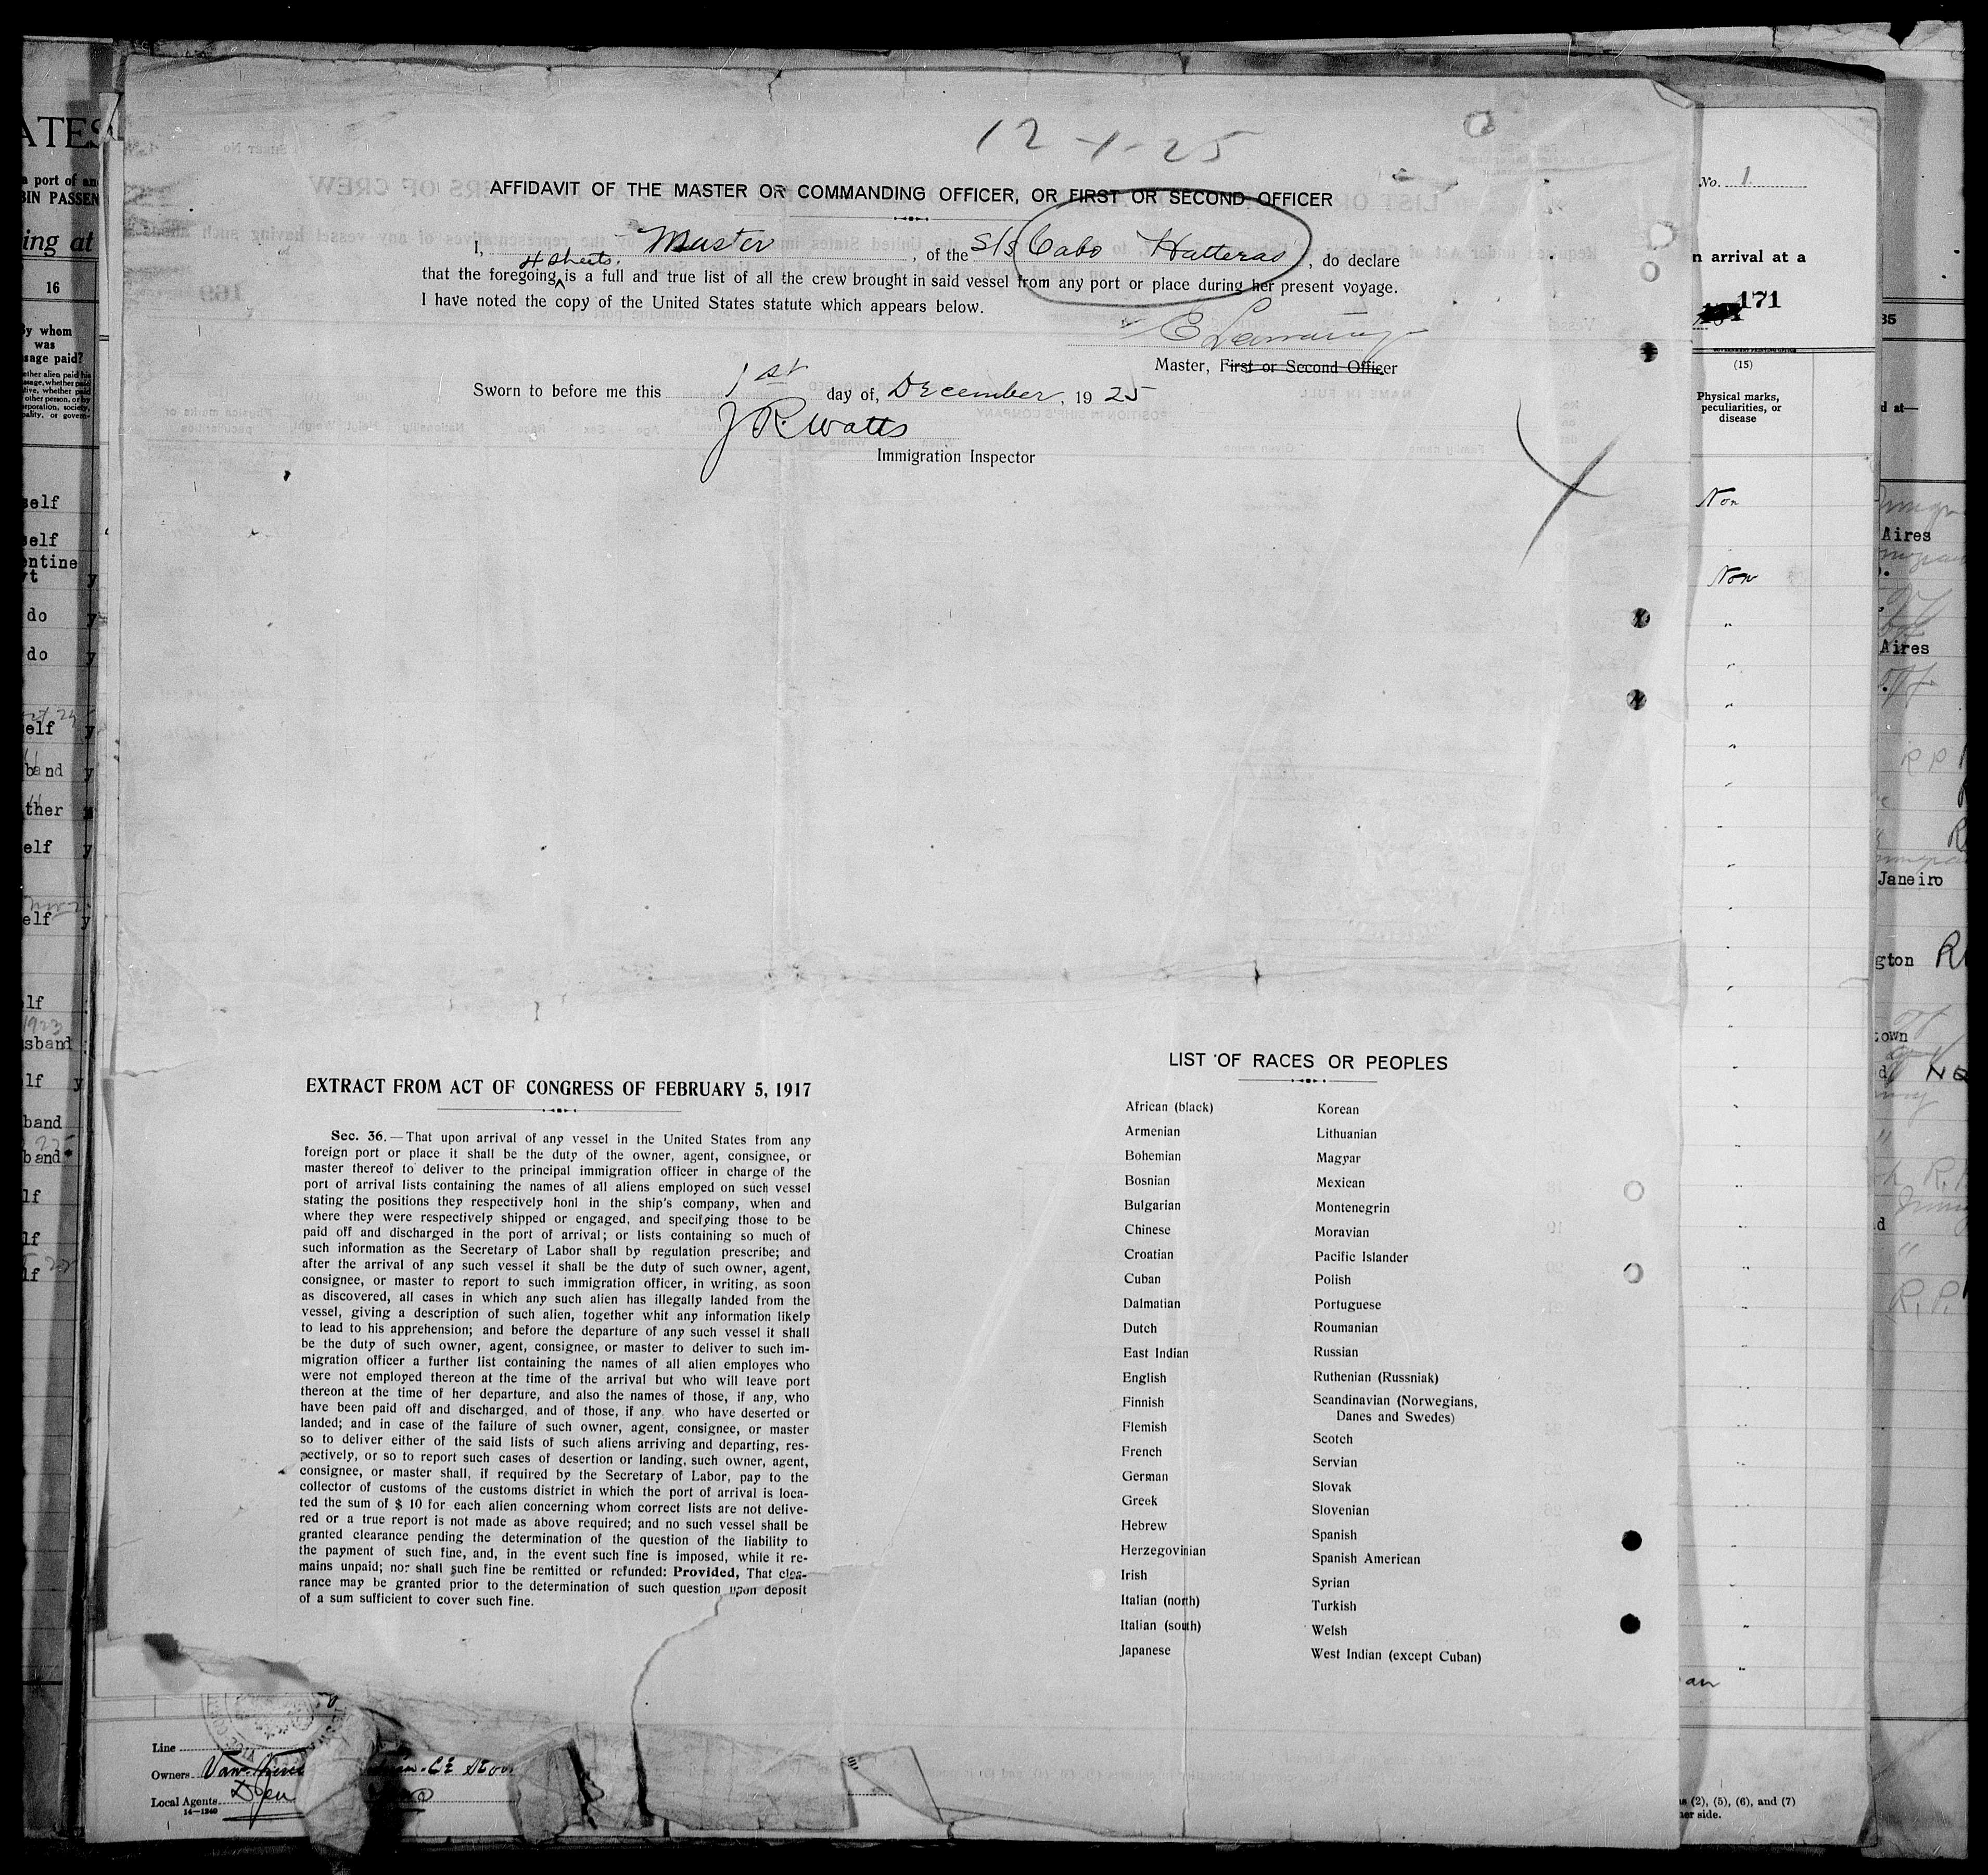 12-1-25
AFFIDAVIT OF THE MASTER OR COMMANDING OFFICER, OR FIRST OR SECOND OFFICER
I, Master, of the S/S Cabo Hatteras, do declare
4 sheets.
that the foregoing is a full and true list of all the crew brought in said vessel from any port or place during her present voyage.
I have noted the copy of the United States statute which appears below.
Master, First or Second Officer
Sworn to before me this 1st day of, December, 1925
J R Watts
Immigration Inspector
EXTRACT FROM ACT OF CONGRESS OF FEBRUARY 5, 1917
Sec. 36.—That upon arrival of any vessel in the United States from any
foreign port or place it shall be the duty of the owner, agent, consignee, or
master thereof to deliver to the principal immigration officer in charge of the
port of arrival lists containing the names of all aliens employed on such vessel
stating the positions they respectively honl in the ship's company, when and
where they were respectively shipped or engaged, and specifying those to be
paid off and discharged in the port of arrival; or lists containing so much of
such information as the Secretary of Labor shall by regulation prescribe; and
after the arrival of any such vessel it shall be the duty of such owner, agent,
consignee, or master to report to such immigration officer, in writing, as soon
as discovered, all cases in which any such alien has illegally landed from the
vessel, giving a description of such alien, together whit any information likely
to lead to his apprehension; and before the departure of any such vessel it shall
be the duty of such owner, agent, consignee, or master to deliver to such im-
migration officer a further list containing the names of all alien employes who
were not employed thereon at the time of the arrival but who will leave port
thereon at the time of her departure, and also the names of those, if any, who
have been paid off and discharged, and of those, if any, who have deserted or
landed; and in case of the failure of such owner, agent, consignee, or master
so to deliver either of the said lists of such aliens arriving and departing, res-
pectively, or so to report such cases of desertion or landing, such owner, agent,
consignee, or master shall, if required by the Secretary of Labor, pay to the
collector of customs of the customs district in which the port of arrival is loca-
ted the sum of $ 10 for each alien concerning whom correct lists are not delive-
red or a true report is not made as above required; and no such vessel shall be
granted clearance pending the determination of the question of the liability to
the payment of such fine, and, in the event such fine is imposed, while it re-
mains unpaid; nor shall such fine be remitted or refunded: Provided, That clea-
rance may be granted prior to the determination of such question upon deposit
of a sum sufficient to cover such fine.
LIST OF RACES OR PEOPLES
African (black)
Armenian
Bohemian
Bosnian
Bulgarian
Chinese
Croatian
Cuban
Dalmatian
Dutch
East Indian
English
Finnish
Flemish
French
German
Greek
Hebrew
Herzegovinian
Irish
Italian (north)
Italian (south)
Japanese
Korean
Lithuanian
Magyar
Mexican
Montenegrin
Moravian
Pacific Islander
Polish
Portuguese
Roumanian
Russian
Ruthenian (Russniak)
Scandinavian (Norwegians,
Danes and Swedes)
Scotch
Servian
Slovak
Slovenian
Spanish
Spanish American
Syrian
Turkish
Welsh
West Indian (except Cuban)
Line
Owners
Local Agents
14—1240
No. 1
n arrival at a
171
(15)
Physical marks,
peculiarities, or
disease
Non
Non
s (2), (5), (6), and (7)
er side.
ATES
a port of an
BIN PASSEN
ing at
16
By whom
was
sage paid?
self
self
entine
do
do
elf
band
ther
elf
elf
lf
1923
sband
lf
band
band
lf
lf
lf
35
d at—
Aires
Aires
Janeiro
gton
town